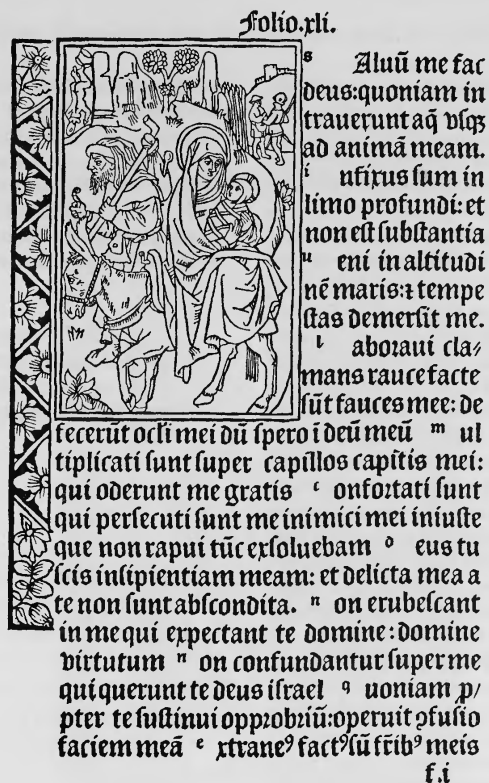 Folio.xli.
s Aluū me fac
deus:quoniam in
trauerunt aq̄ vſqꝫ
ad animā meam.
i nfixus ſum in
limo profundi: et
non eſt ſubſtantia
u eni in altitudi
nē maris:⁊ tempe
ſtas demerſit me.
l aboraui cla⸗
mans rauce facte
ſūt fauces mee: de
fecerūt ocłi mei dū ſpero ī deū meū m ul
tiplicati ſunt ſuper capillos capitis mei:
qui oderunt me gratis c onfortati ſunt
qui perſecuti ſunt me inimici mei iniuſte
que non rapui tūc exſoluebam d eus tu
ſcis inſipientiam meam: et delicta mea a
te non ſunt abſcondita. n on erubeſcant
in me qui expectant te domine: domine
virtutum n on confundantur ſuper me
qui querunt te deus iſrael q uoniam ꝓ⸗
pter te ſuſtinui opprobriū:operuit ꝯfuſio
faciem meā e xtraneꝰ factꝰ ſū fr̄ibꝰ meis
f.i